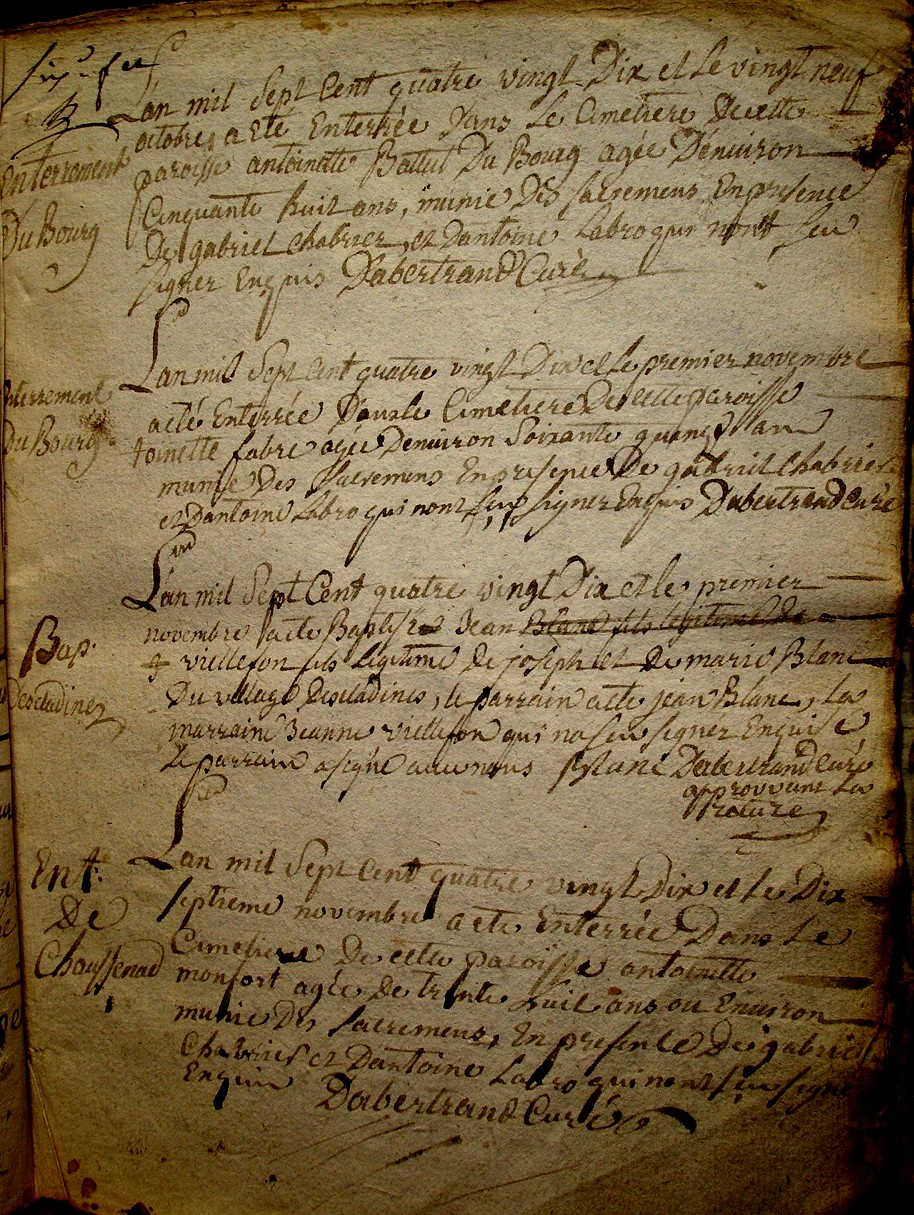 Enterrement
Du Bourg
L'an mil Sept Cent quatre vingt Dix et Le vingt neuf
octobre a Eté Enterrée Dans Le Cimetiere De cette
paroisse antoinette Battut Du Bourg agée D'Enuiron
Cinquante huit ans, munie Des sacremens, En presence
De gabriel chabrier, et Dantoine Labro qui nont seu
signer Enquis Dabertrand Curé
Enterrement
Du Bourg
Lan mil Sept Cent quatre vingt Dix et Le premier novembre
a eté Enterrée Dans Le Cimetiere De cette paroisse an
toinette fabre agée Denuiron Soixante quinze ans
munie Des sacremens En presence De gabriel chabrier
et Dantoine Labro qui nont seu signer Enquis Dabertrand curé
Bap.
Desoladines
L'an mil Sept Cent quatre vingt Dix et le premier
novembre a ete Baptisé Jean Blanc fils legitime de
viellefon fils Legitime de joseph et de marie Blanc
Du village Descladines, le parrain a ete jean Blanc, La
marraine Jeanne viellefon qui na seu signer Enquise
Le parrain a signé auec nous Blanc Dabertrand Curé
approuvant La
rature
Ent.
De
Chaussenad
Lan mil Sept Cent quatre vingt Dix et Le Dix
septieme novembre a ete Enterrée Dans Le
Cimetiere De cette paroisse antoinette
monfort agée De trente huit ans ou Enuiron
munie Des sacremens, En presence De gabriel
Chabrier et Dantoine Labro qui nont seu signer
Enquis
Dabertrand Curé